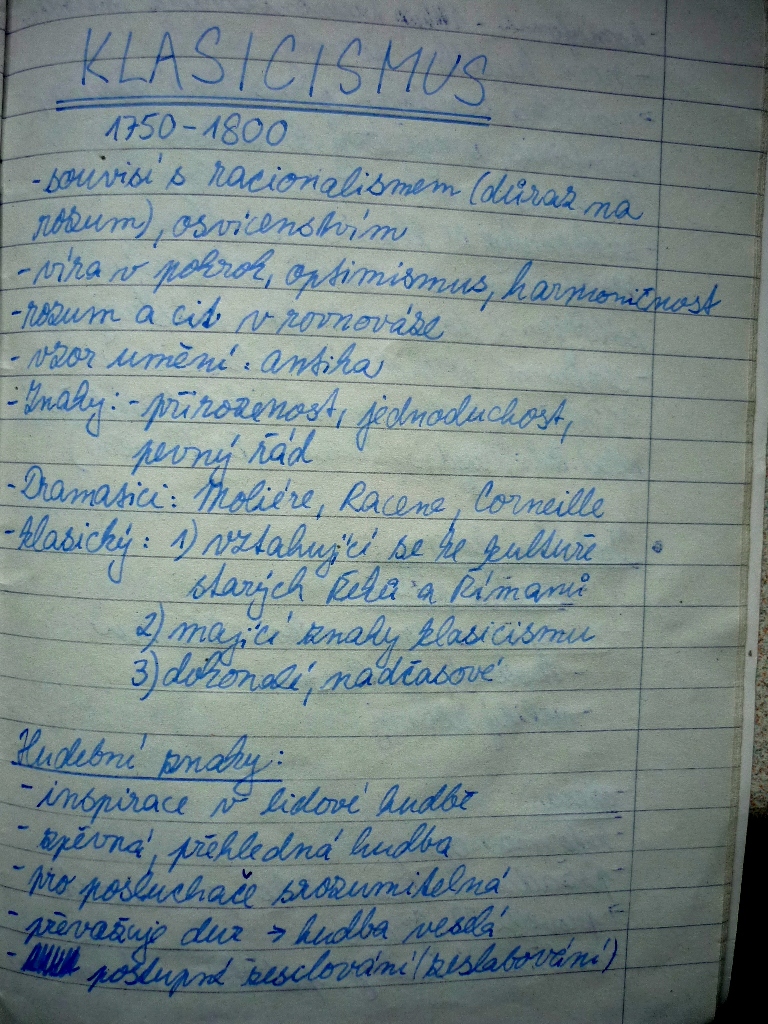 KLASICISMUS
1750-1800
- souvisí s racionalismem (důraz na
rozum), osvícenstvím
- víra v pokrok, optimismus, harmoničnost
- rozum a cit v rovnováze
- vzor umění: antika
- Znaky: - přirozenost, jednoduchost,
pevný řád
- Dramatici: Moliére, Racene, Corneille
- klasický: 1) vztahující se ke kultuře
starých Řeků a Římanů
2) mající znaky klasicismu
3) dokonalé, nadčasové
Hudební znaky:
- inspirace v lidové hudbě
- zpěvná, přehledná hudba
- pro posluchače srozumitelná
- převažuje dur → hudba veselá
- postupné zesilování (zeslabování)